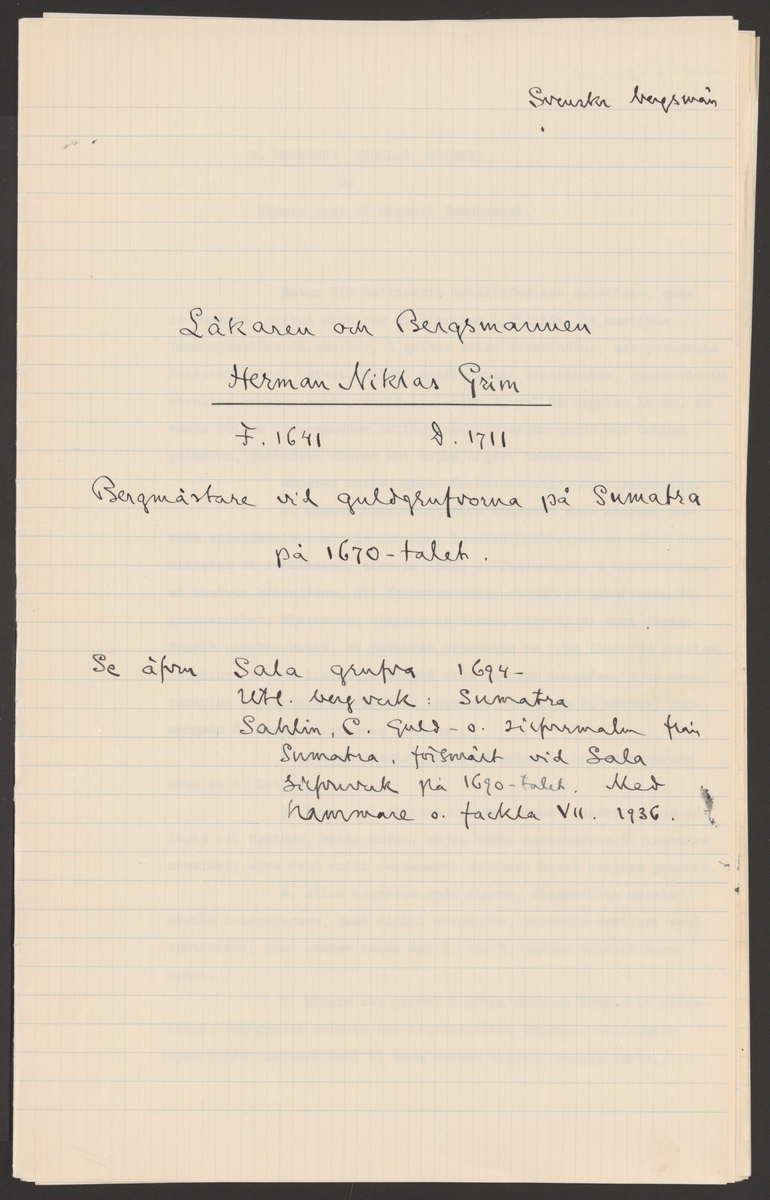 Svenska bergsmän
Läkaren och Bergsmannen
Herman Niklas Grim
F. 1641 D. 1711
Bergmästare vid guldgrufvorna på Sumatra
på 1670-talet.
Se äfven Sala grufva 1694-
Utl. bergverk: Sumatra
Sahlin, C. Guld- o. silfvermalm från
Sumatra, försmält vid Sala
silfververk på 1690-talet. Med
hammare o. fackla VII. 1936.